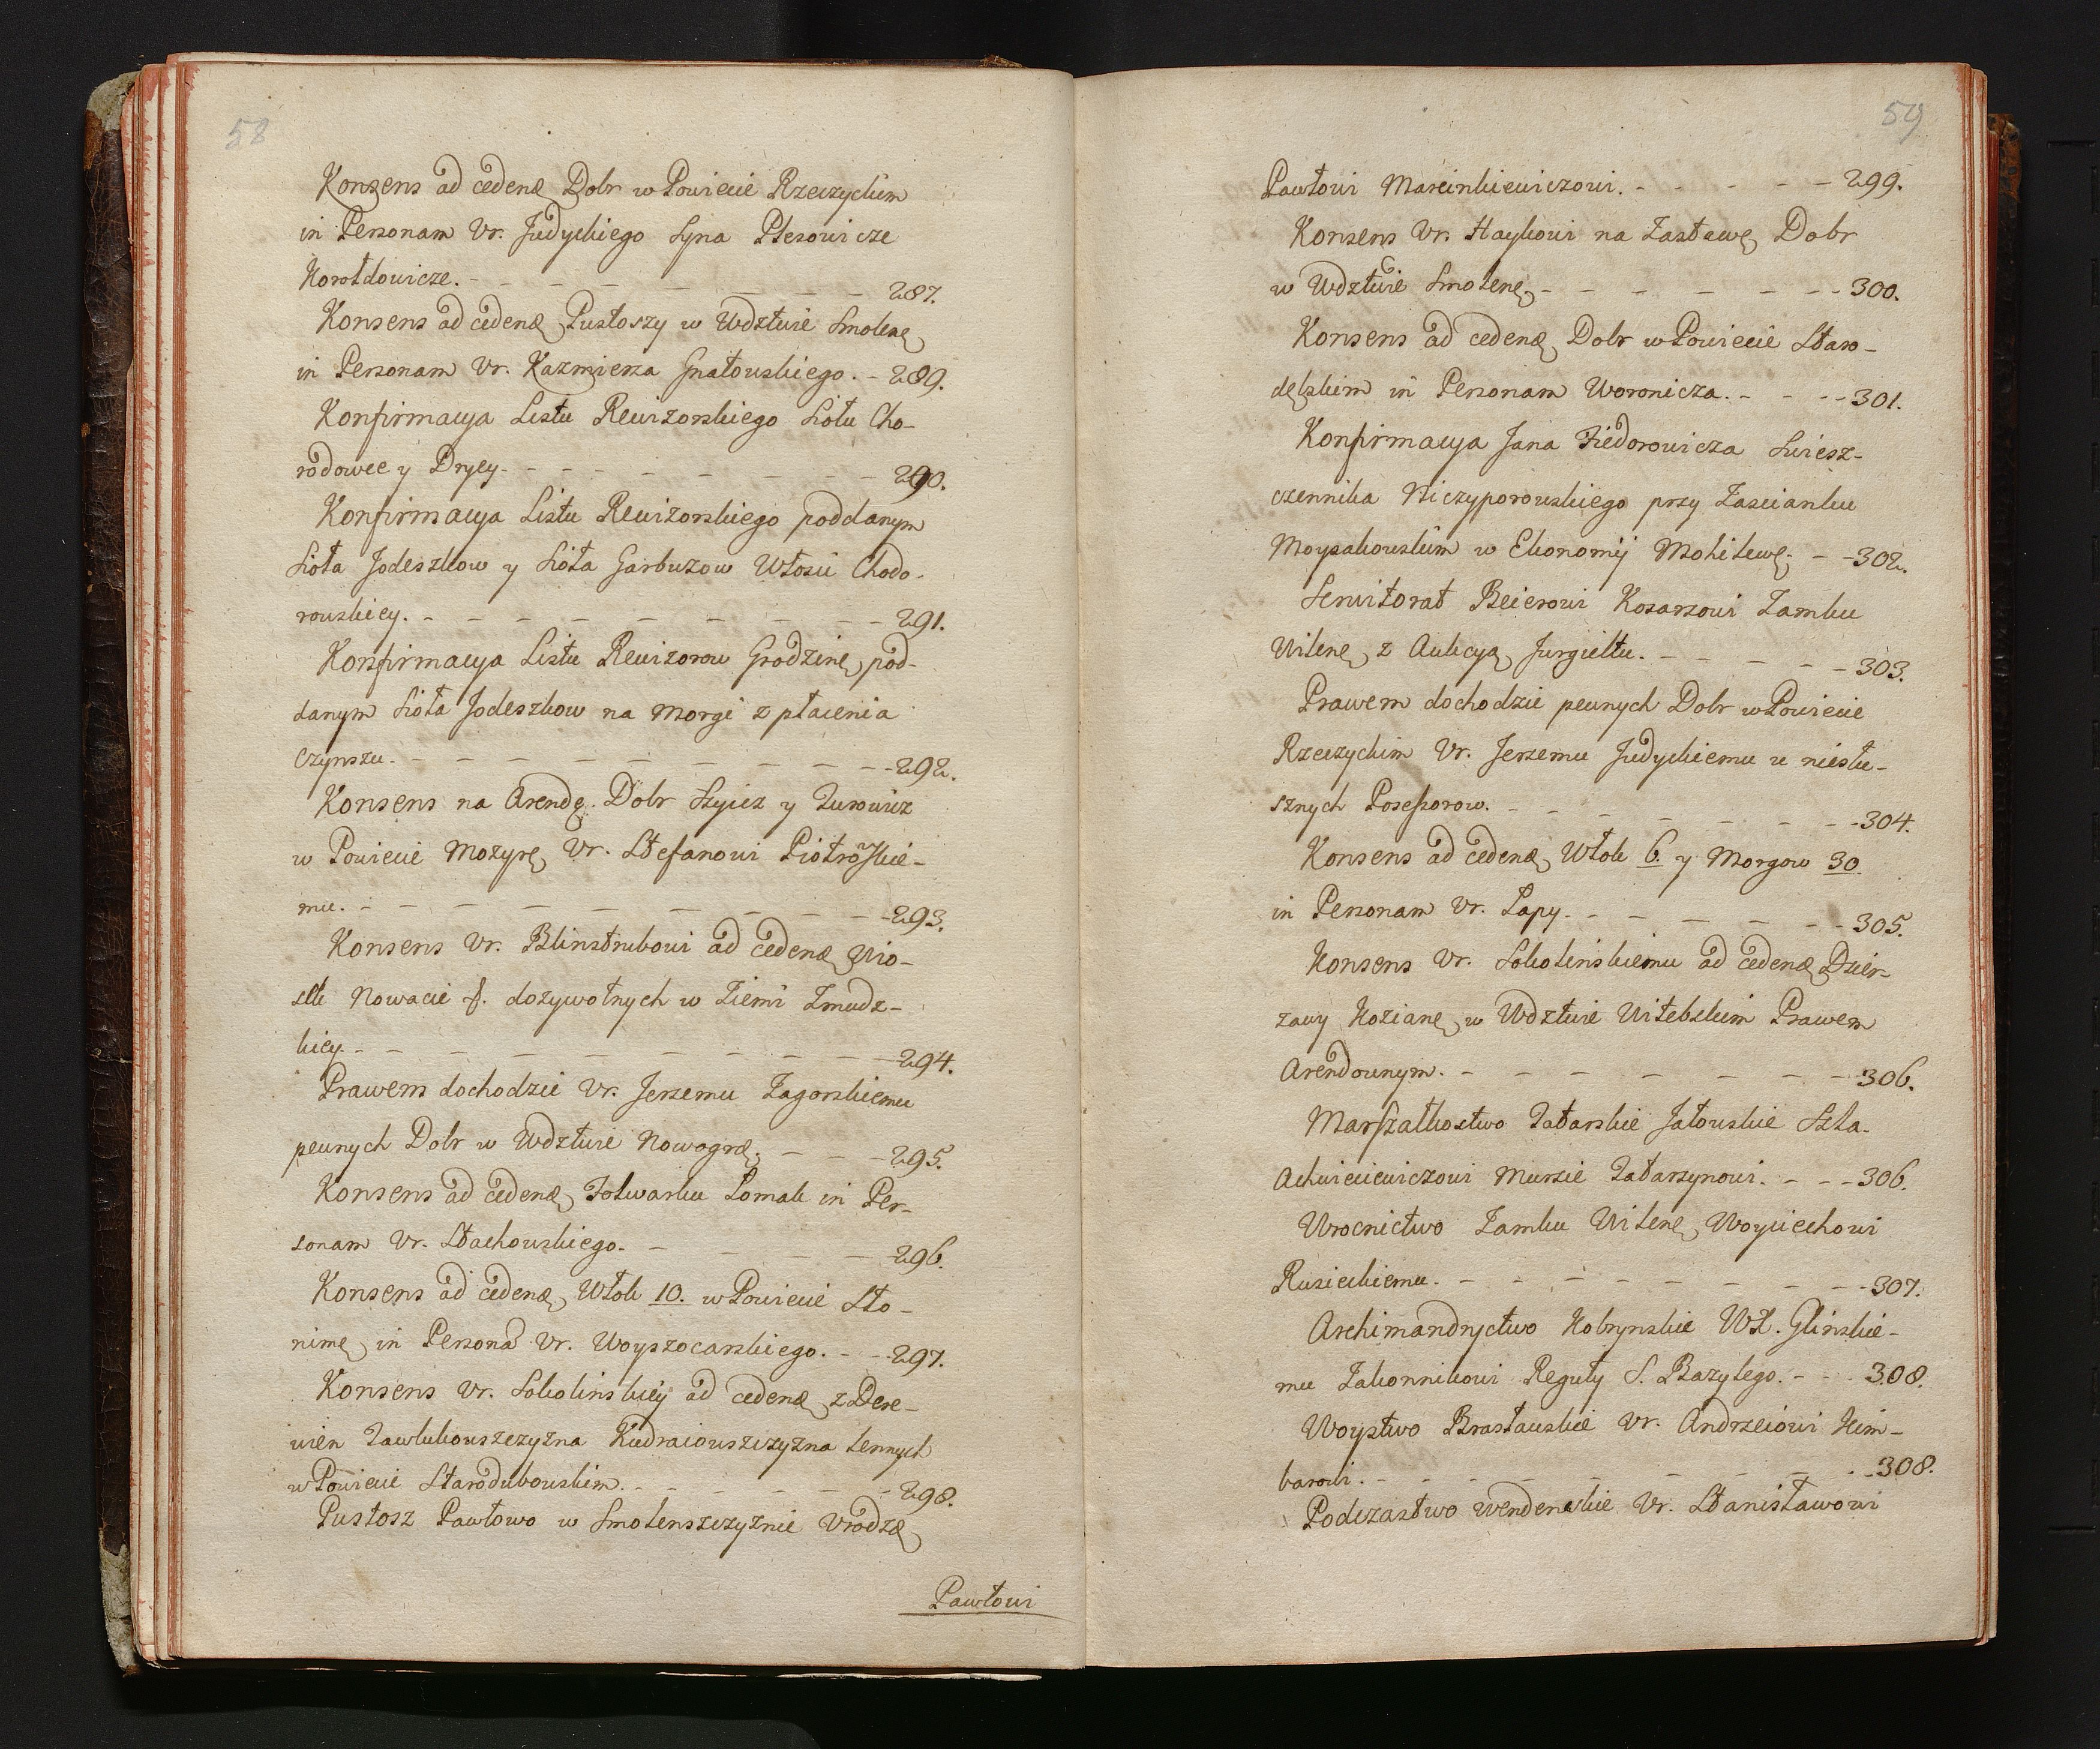 58
Konsens ad cedenӕ Dobr w Powiecie Rzeczyckim
in Personam Vr. Judyckiego Syna Plesowicze
Horołdowicze. 287.
Konsens ad cedenӕ Pustoszy w Wdztwie Smolenę
in Personam Vr. Kazmierza Gnatowskiego. - 289.
Konfirmacya Listu Rewizorskiego Siołu Cho-
rodowce y Drycy. 290.
Konfirmacya Listu Rewizorskiego poddanym
Sioła Jodeszkow y Sioła Garbuzow Włosci Chodo-
rowskiey. 291.
Konfirmacya Listu Rewizorow Grodzinę pod-
danym Sioła Jodeszkow na Morgi z płacenia
Czynszu. 292.
Konsens na Arendę Dobr Szyicz y Turowicz
w Powiecie Mozyrę Vr. Stefanowi Piotroskie-
mu. 293.
Konsens Vr. Blinstrubowi ad cedenӕ Wio-
sek Nowacie f. dozywotnych w Ziemi Zmudz-
kiey. 294.
Prawem dochodzic Vr. Jerzemu Zagorskiemu
pewnych Dobr w Wdztwie Nowogrӕ. 295.
Konsens ad cedenӕ Folwarku Lomak in Per-
sonam Vr. Stachowskiego. 296.
Konsens ad cedenӕ Włok 10. w Powiecie Sło-
nimę in Persona Vr. Woyszocarskiego. - - 297.
Konsens Vr. Sokolinskiey ad cedenӕ z Dere-
wien Zawlukowszczyzna Kudraiowszczyzna lennych
w Powiecie Starodubowskim. 298.
Pustosz Pawłowo w Smolenszczyznie Vrodzӕ
Pawłowi
59
Pawłowi Marcinkiewiczowi. 299.
Konsens Vr. Haykowi na Zastawę Dobr
w Wdztwie Smolenę. 300.
Konsens ad cedenӕ Dobr w Powiecie Staro-
dębskim in Personam Woronicza. 301.
Konfirmacya Jana Fiedorowicza Swiesz-
czennika Niczyporowskiego przy Zascianku
Moysakowskim w Ekonomij Mohilewę. - - 302.
Serwitorat Beierowi Kosarzowi Zamku
Wilenę z Aukcyą Jurgieltu. 303.
Prawem dochodzic pewnych Dobr w Powiecie
Rzeczyckim Vr. Jerzemu Judyckiemu u niesłu-
sznych Posessorow. 304.
Konsens ad cedenӕ Włok 6. y Morgow 30.
in Personam Vr. Łapy. 305.
Konsens Vr. Sokolinskiemu ad cedenӕ Dzier-
zawy Kozianę w Wdztwie Witebskim Prawem
Arendownym. 306.
Marszałkostwo Tatarskie Jałowskie Szla-
Achwieciewiczowi Murzie Tatarzynowi. - - - 306.
Wrocnictwo Zamku Wilenę Woyciechowi
Rusieckiemu. 307.
Archimandryctwo Kobrynskie WX. Glinskie-
mu Zakonnikowi Reguły S. Bazylego. - - - 308.
Woystwo Brasławskie Vr. Andrzeiowi Kim-
barowi. 308.
Podczastwo wendenskie Vr. Stanisławowi